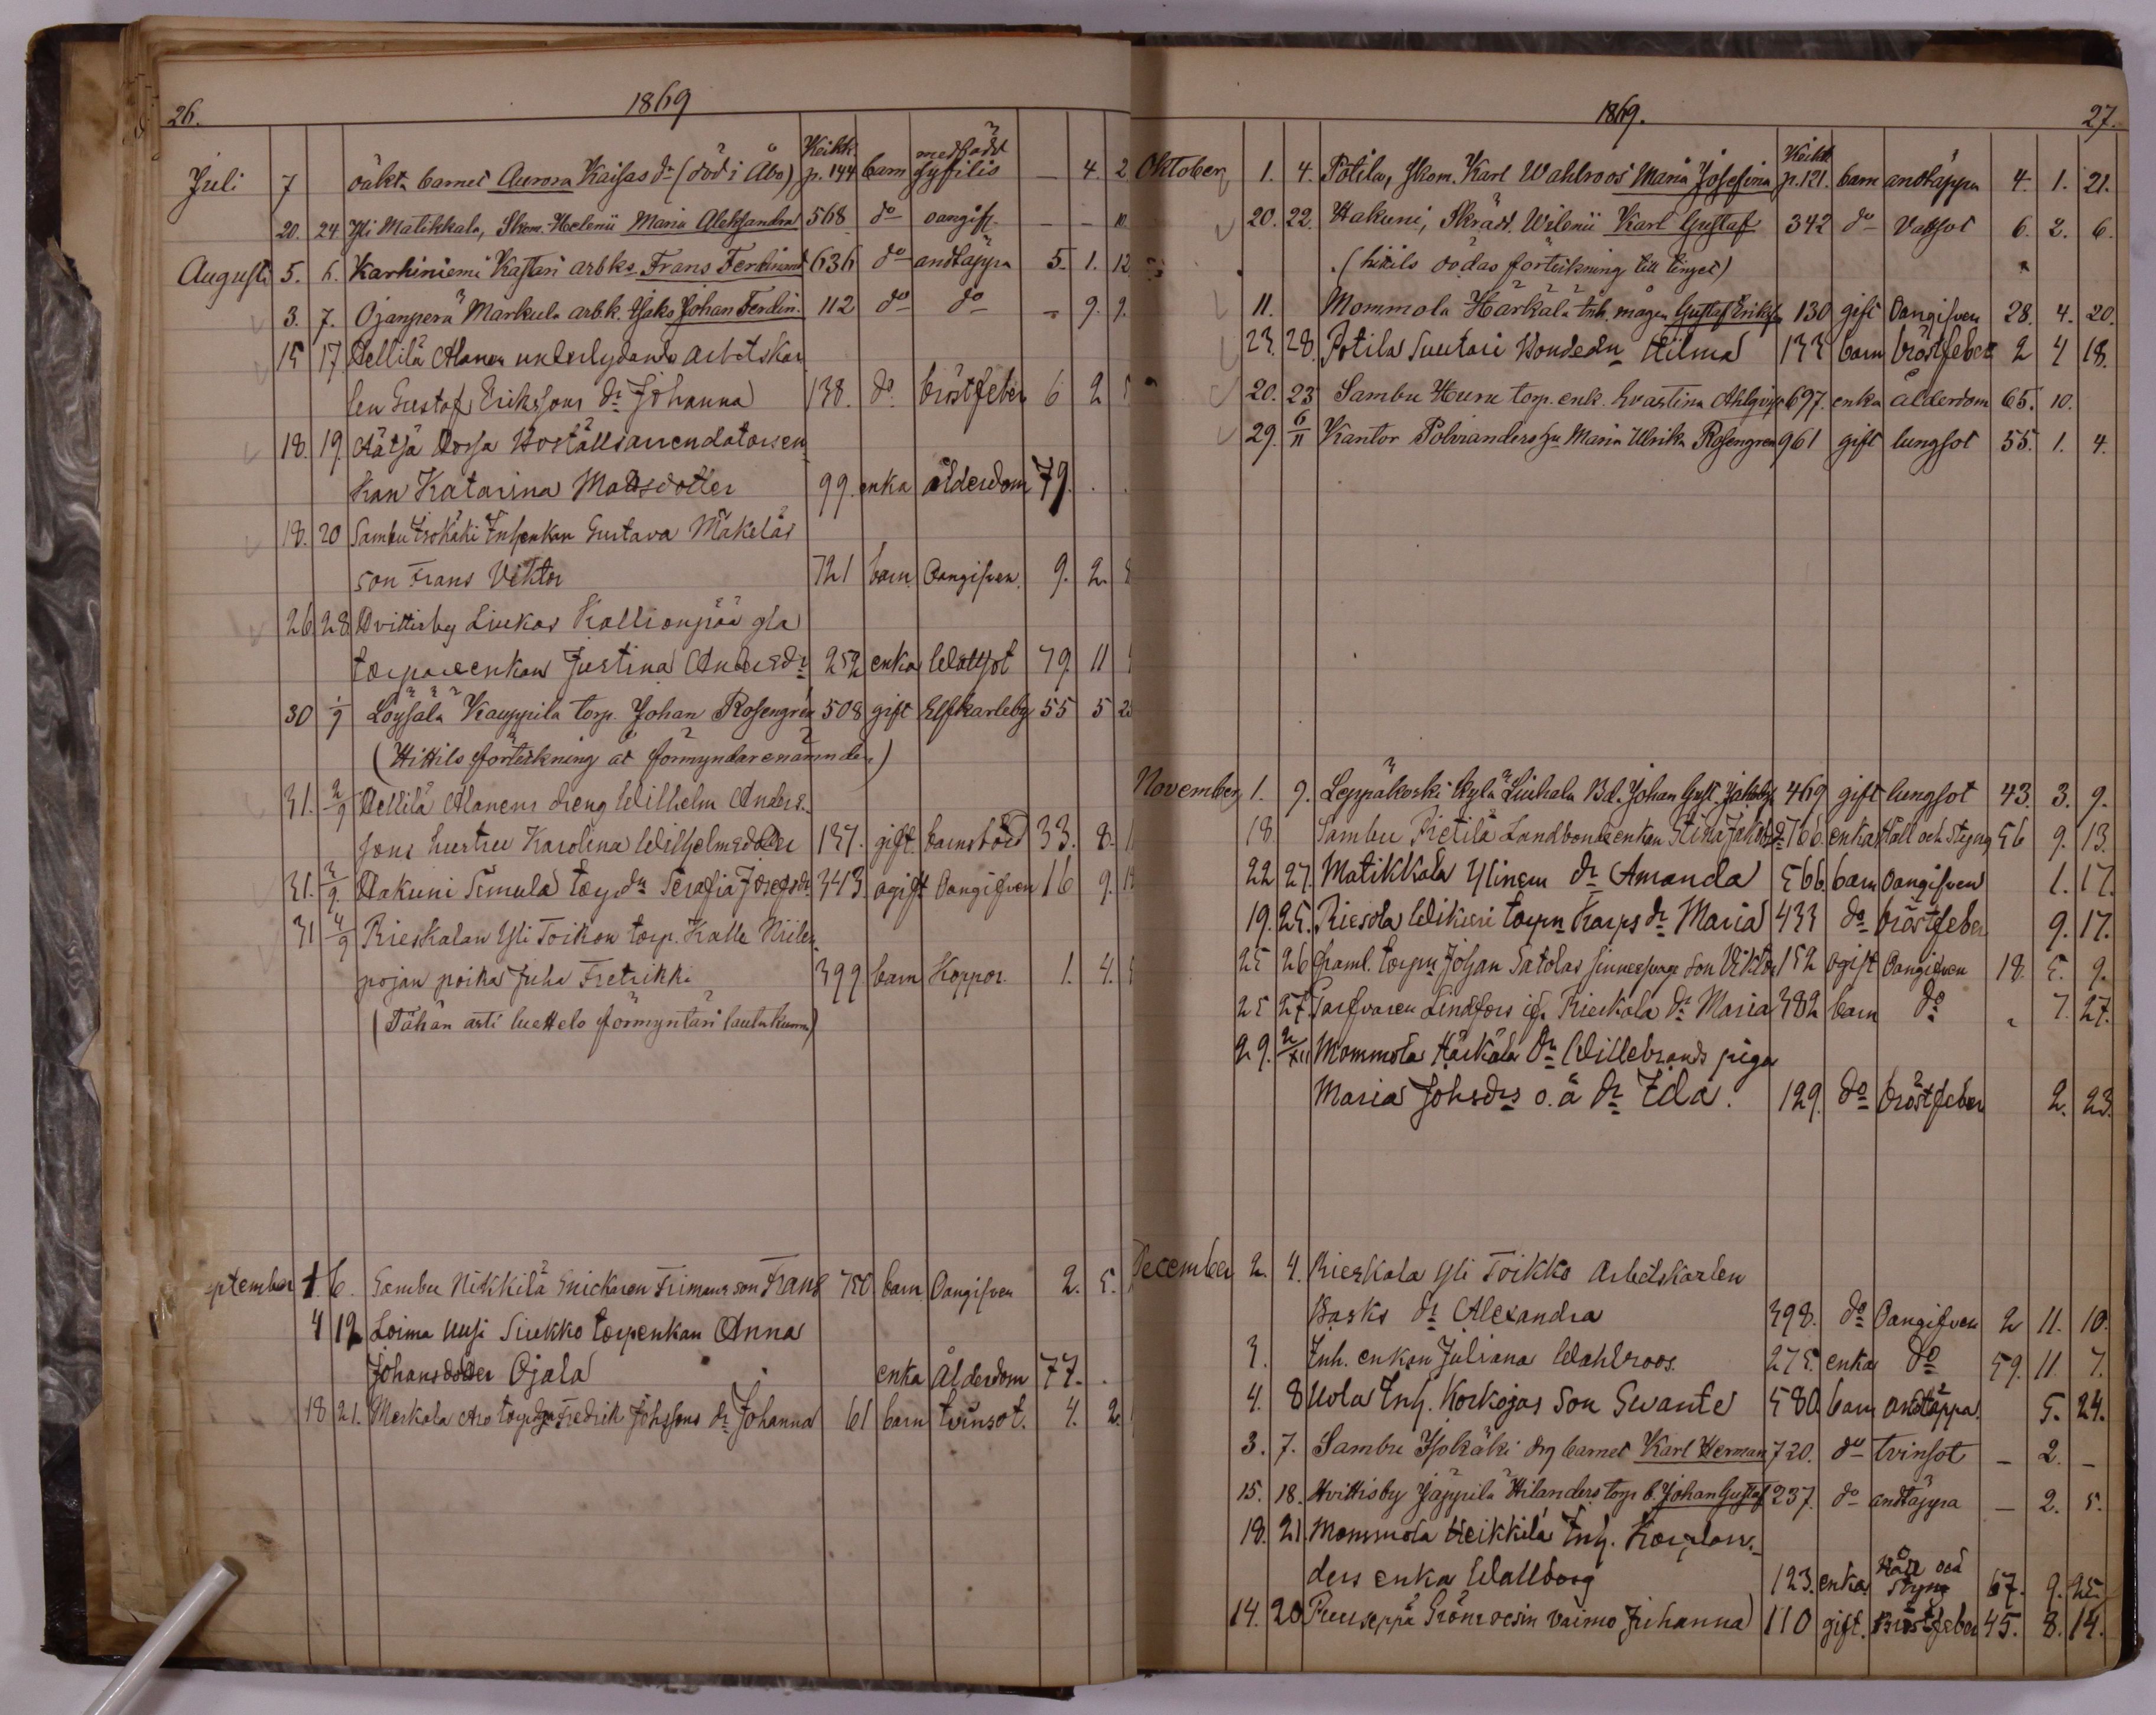 26.
1869
Juli 7 oäkta barnet Aurora Kaisas dr (död i Åbo) Keikk. p. 144 barn medfödd syfilis — 4. 2
20. 24 Yli Matikkala, Skom. Helenii Maria Aleksandra 568 do oangift. — — 10.
Augusti 5. 6. Karhiniemi Kastari arbks. Frans Ferdinand 636 do andtäppa 5. 1. 12
3. 7. Ojanperä Markula arbk. Isaks Johan Ferdin. 112 do do — 9. 9.
15 17 Hellilä Alanen underlydande arbetskar
len Gustaf Erikssons dr Johanna 138. do bröstfeber 6 2
18. 19 Rätsä Boställsarrendatorsen
kan Katarina Matsdotter 99. enka ålderdom 79.
18. 20 Sambu Isokäki Inhenkan Gustava Mäkeläs
son Frans Viktor 721 barn Oangifven. 9. 2.
26 28 Hvittisby Liukas Kallionpää gla
torpareenkan Justina Andersdr 252 enka Wattsot 79 11
30 1/9 Löysälä Kauppila torp. Johan Rosengren 508 gift Elfkarleby 55 5
(Hittils förteckning åt förmyndarenämnden)
31. 2/9 Hellilä Alanens dreng Wilhelm Anders-
sons hustru Karolina Wilhelmsdotter 137. gift. barnsbörd 33. 8.
31. 3/9. Hakuni Simula torp. dr Serafia Josefsdr. 343. ogift Oangifven 16 9.
31 4/9 Rieskalan Yli Toikon torp. Kalle
pojan poika Juha Fretrikki 399 barn Koppor. 1. 4.
(Tähän asti luettelo förmyntäri lautakunnan)
September 1. 6. Sambu Nikkilä Snickaren Frimans son Frans 750 barn Oangifven 2. 5.
4 12 Loima Uusi Siukko torpenkan Anna
Johansdotter Ojala enka Ålderdom 77.
18 21. Meskala Aro Fredrik Johssons dr Johanna 61 barn tvinsot. 4. 2.
1869.
27.
Oktober 1. 4. Potila, Skom. Karl Wahlroos Maria Josefina Keikk. p. 121. barn andtäppa 4. 1. 21.
20. 22. Hakuni, Skrädd. Wilenii Karl Gustaf 342 do Vattsot 6. 2. 6.
(hitils dödas förteckning till tinget)
11. Mommola Härkälä Inh. mågen Gustaf Eriks 130 gift Oangifven 28. 4. 20.
23. 28. Potila Suutari Hilma 133 barn bröstfeber 2 4 18.
20. 23 Sambu Heuru torp. enk. Evastina Ahlqvist 697. enka ålderdom 65. 10.
29. 6/11 Kantor Polvianders hu Maria Ulrika Rosengren 961 gift lungsot 55. 1. 4.
November 1. 9. Leppäkoski Kylä Liuhala Bd. Johan Gust. Jakobs 469 gift lungsot 43. 3. 9.
18. Sambu Pietilä Landbondeenkan Stina Jakobsdr 766. enka Håll och Styng 56 9. 13.
22 27. Matikkala Ylinens dr Amanda 566. barn Oangifven 1. 17.
19. 25. Riesola Wikuri torpn Karps dr Maria 433 do bröstfeber 9. 17.
25 26 framl. torpn Johan Satolas sinnessvage son Viktor 152 ogift Oangifven 18. 5. 9.
25 27 Garfvaren Lindfors ifr. Rieskala dr Maria 382 barn do „ 7. 27.
29. 2/XII Mommola Härkälä Dr Willebrands piga
Maria Johsdrs o. ä dr Ida. 129. do Bröstfeber 2. 23.
December 2. 4. Rieskala Yli Toikko Arbetskarlen
Basks dr Alexandra 398. do Oangifven 2 11. 10.
3. Inh. enkan Juliana Wahlroos. 275. enka do 59. 11 7.
4. 8 Uola Inh. Korkojas Son Svante 580 barn Andtäppa. 5. 24.
3. 7. Sambu Isokäki drg barnet Karl Herman 720. do tvinsot — 2. —
15. 18. Hvittisby Jäppilä Hilanders torp b. Johan Gustaf 237. do andtäppa — 2. 5.
18. 21. Mommola Heikkilä Inh.
ders enka Wallborg 123. enka. Håll och Styng 67. 9. 25.
14. 20 Puuseppä Grönroosin vaimo Juhanna 110 gift. Bröstfeber 45. 8. 14.